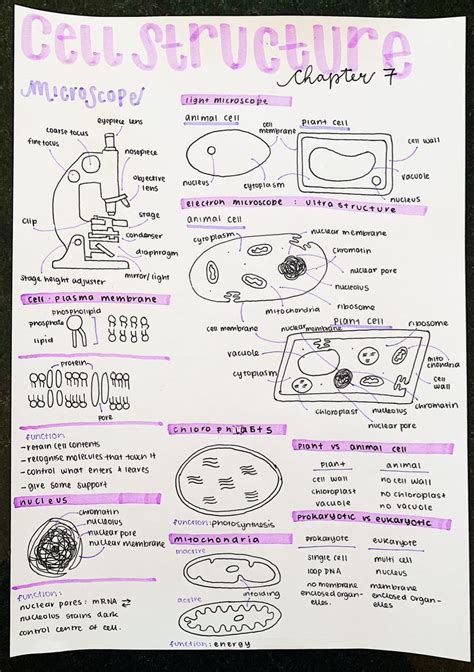 cell structure
chapter 7
microscope
eyepiece lens
coarse focus
fine focus
nosepiece
objective
lens
stage
clip
condenser
diaphragm
stage height adjuster
mirror/light
light microscope
animal cell
cell
membrane
plant cell
cell wall
vacuole
nucleus
cytoplasm
nucleus
electron microscope : ultrastructure
animal cell
cytoplasm
nuclear membrane
chromatin
nuclear pore
nucleolus
ribosome
mitochondria
cell membrane
plant cell
nuclear membrane
ribosome
vacuole
cytoplasm
mito
chondria
cell
wall
chromatin
nucleolus
chloroplast
nuclear pore
cell - plasma membrane
phospholipid
phosphate
lipid
protein
pore
function
- retain cell contents
- recognise molecules that touch it
- control what enters & leaves
- give some support
nucleus
chromatin
nucleolus
nuclear pore
nuclear membrane
function:
nuclear pores: mRNA ⇌
nucleolus stains dark
control centre of cell.
chloroplasts
function: photosynthesis
mitochondria
inactive
infolding
active
function: energy
plant vs animal cell
plant animal
cell wall no cell wall
chloroplast no chloroplast
vacuole no vacuole
prokaryotic vs eukaryotic
prokaryote eukaryote
single cell multi cell
loop DNA nucleus
no membrane membrane
enclosed organ- enclosed organ-
elles. elles